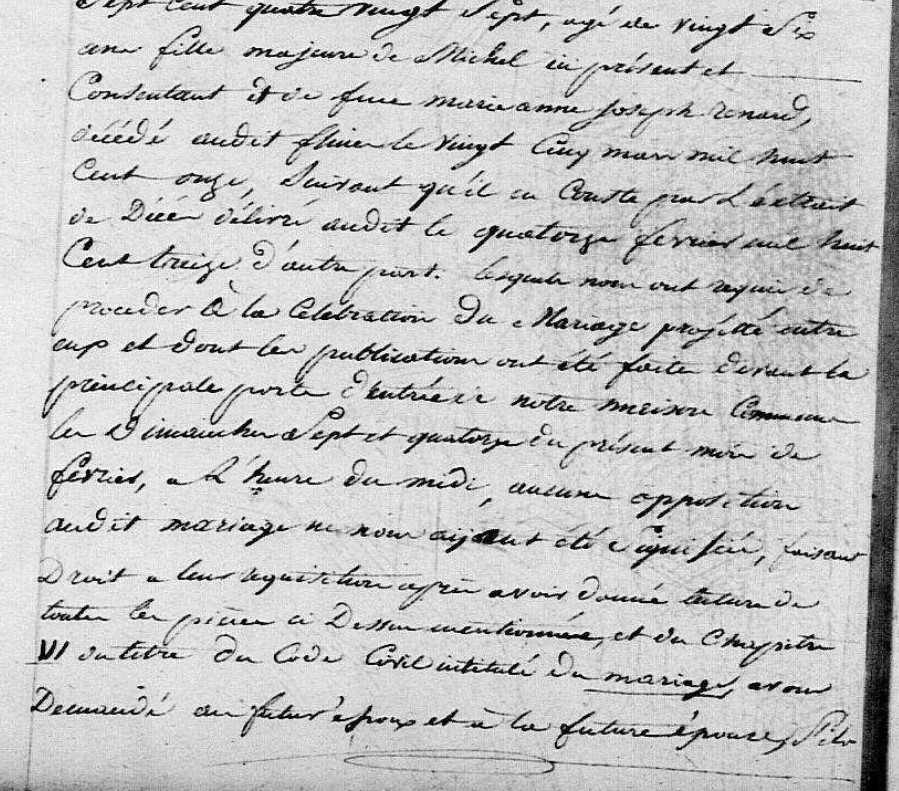 Sept cent quatre vingt Sept, agé de vingt Six
ans fille majeure de Michel ici présent et
Consentant et de feue marie anne joseph renard,
décédé audit flines le vingt Cinq mars mil huit
Cent onze, Suivant qu'il en Conste par L'extrait
de Décés délivré audit le quatorze fevrier mil huit
Cent treize d'autre part. lesquels nous ont requis de
proceder à la Célébration du Mariage projetté entre
eux et dont les publications ont été faite devant la
principale porte d'entrée de notre maison Commune
les Dimanches Sept et quatorze du présent mois de
fevrier, a L'heure du midi, aucune opposition
audit mariage ne nous aijant été Signifiée, faisant
Droit a leur requisition après avoir donné lecture de
toutes les pièces ci Dessus mentionnées, et du Chapitre
VI du titre du Code Civil intitulé du mariage, avons
Demandé au futur époux et à la future épouse, S'ils